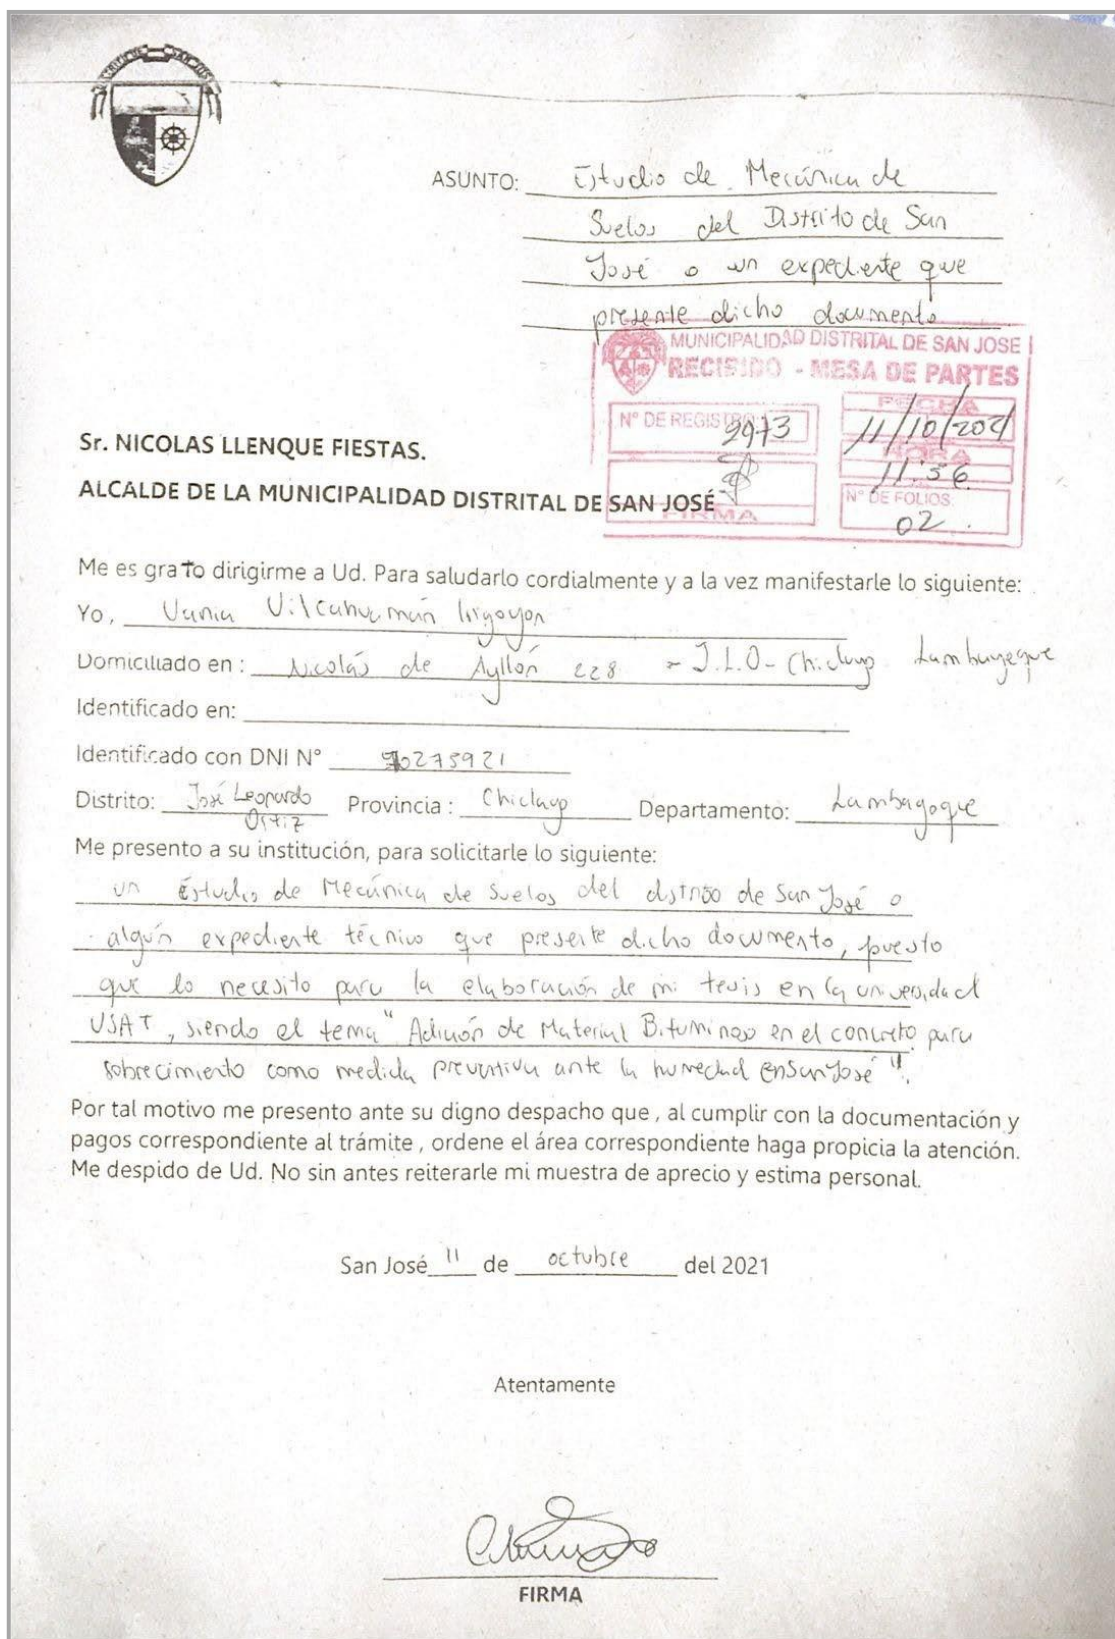 DISTRITO SAN JOSE
ASUNTO: Estudio de Mecánica de
Suelos del Distrito de San
José o un expediente que
presente dicho documento
MUNICIPALIDAD DISTRITAL DE SAN JOSE
RECIBIDO - MESA DE PARTES
Nº DE REGISTRO: 2973
FECHA
11/10/2021
HORA
11:56
FIRMA
Nº DE FOLIOS:
02
Sr. NICOLAS LLENQUE FIESTAS.
ALCALDE DE LA MUNICIPALIDAD DISTRITAL DE SAN JOSÉ
Me es grato dirigirme a Ud. Para saludarlo cordialmente y a la vez manifestarle lo siguiente:
Yo, Vania Vilcahuamán Irigoyen
Domiciliado en : Nicolás de Ayllón 228 - J.L.O - Chiclayo Lambayeque
Identificado en:
Identificado con DNI Nº 70275921
Distrito: José Leonardo Ortiz Provincia : Chiclayo Departamento: Lambayeque
Me presento a su institución, para solicitarle lo siguiente:
un Estudio de Mecánica de Suelos del distrito de San José o
algún expediente técnico que presente dicho documento, puesto
que lo necesito para la elaboración de mi tesis en la universidad
USAT, siendo el tema "Adición de Material Bituminoso en el concreto para
sobrecimiento como medida preventiva ante la humedad en San José".
Por tal motivo me presento ante su digno despacho que , al cumplir con la documentación y
pagos correspondiente al trámite , ordene el área correspondiente haga propicia la atención.
Me despido de Ud. No sin antes reiterarle mi muestra de aprecio y estima personal.
San José 11 de octubre del 2021
Atentamente
FIRMA